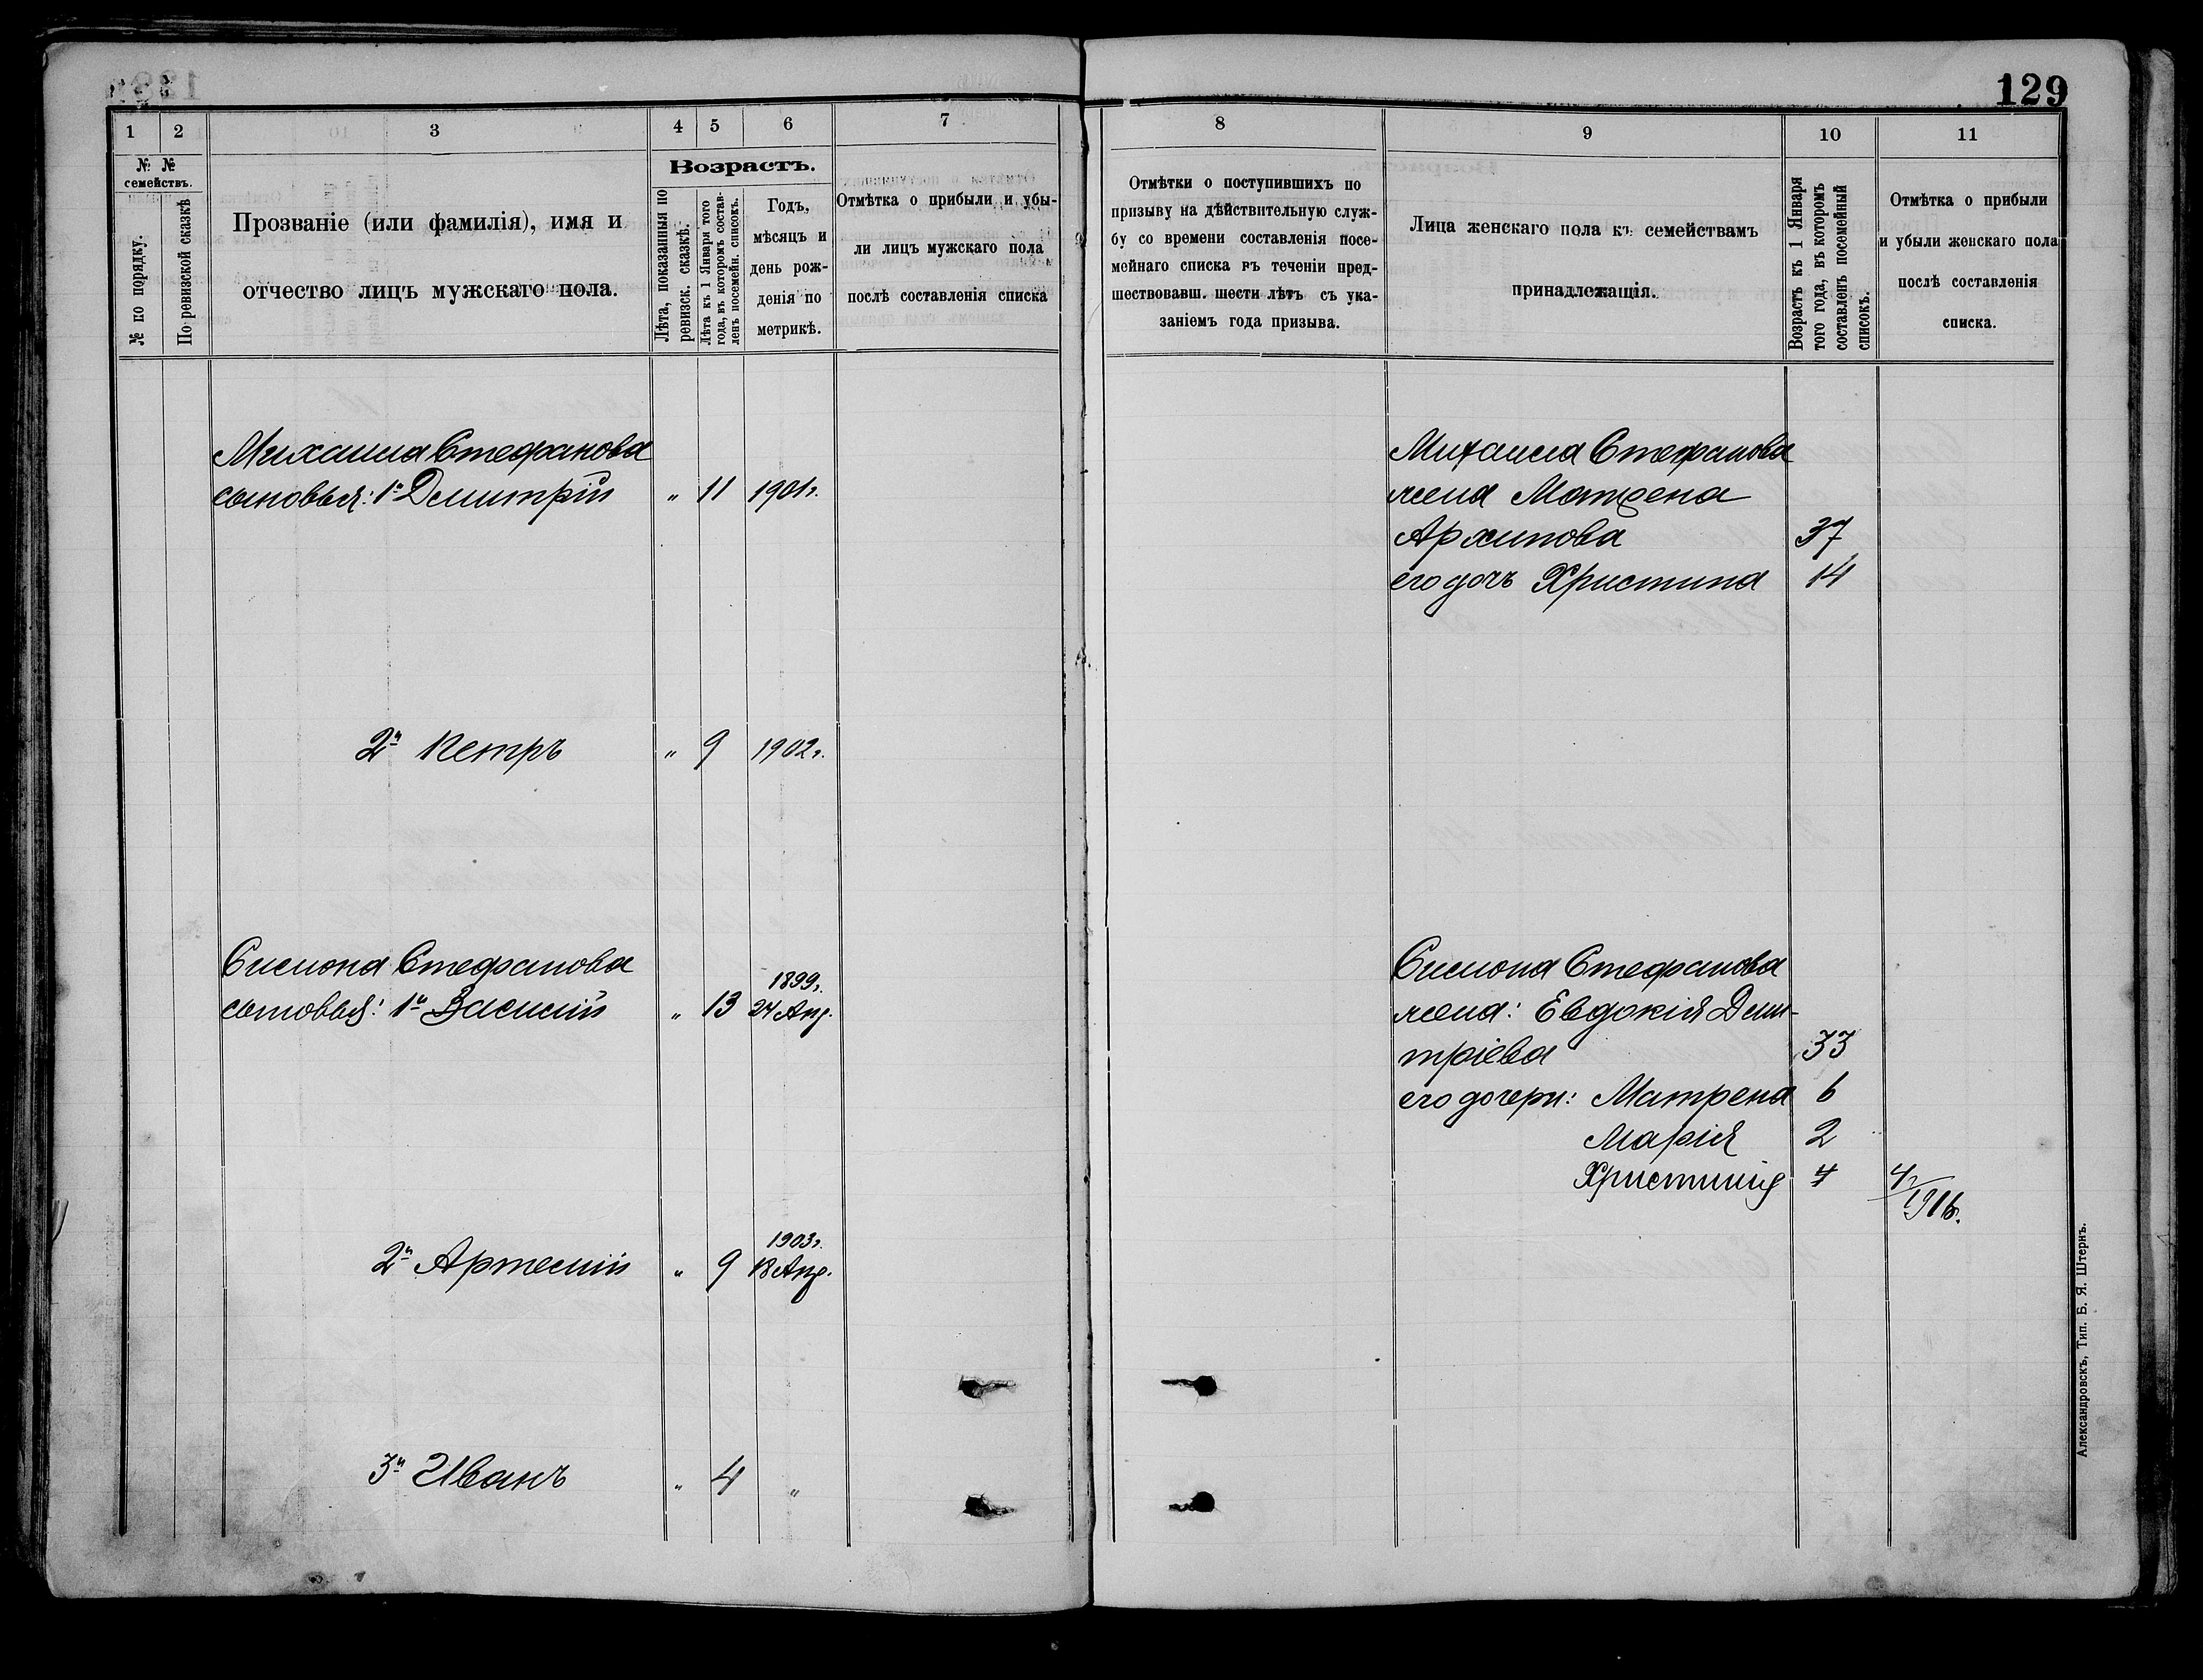 129
1 2 3 4 5 6 7
№ №
семействъ.
№ по порядку.
По ревизской сказкѣ
Прозваніе (или фамилія), имя и
отчество лицъ мужскаго пола.
Возрастъ.
Лѣта, показанныя по
ревизск. сказкѣ.
Лѣта къ 1 Января того
года, въ которомъ состав-
ленъ посемейн. списокъ.
Годъ,
мѣсяцъ и
день рож-
денія по
метрикѣ.
Отмѣтка о прибыли и убы-
ли лицъ мужскаго пола
послѣ составленія списка
Михаила Стефанова
сыновья: 1й Димитрій " 11 1901г.
2й Петръ " 9 1902г.
Симона Стефанова
1899г.
сыновья: 1й Василій " 13 24 Апр.
1903г.
2й Артемій " 9 18 Апр.
3й Иванъ " 4 "
8 9 10 11
Отмѣтки о поступившихъ по
призыву на дѣйствительную служ-
бу со времени составленія посе-
мейнаго списка въ теченіи пред-
шествовавш. шести лѣтъ съ ука-
заніемъ года призыва.
Лица женскаго пола къ семействамъ
принадлежащія.
Возрастъ къ 1 Января
того года, въ которомъ
составленъ посемейный
списокъ.
Отмѣтка о прибыли
и убыли женскаго пола
послѣ составленія
списка.
Михаила Стефанова
жена Матрена
Архипова 37
его дочь Христина 14
Симона Стефанова
жена: Евдокія Дими-
тріева 33
его дочери: Матрена 6
Марія 2
Христинія
1916.
Александровскъ, Тип. Б. Я. Штернъ.